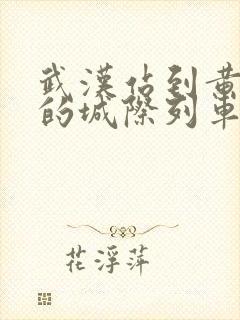 武漢站到黃
的城際列車
花浮萍